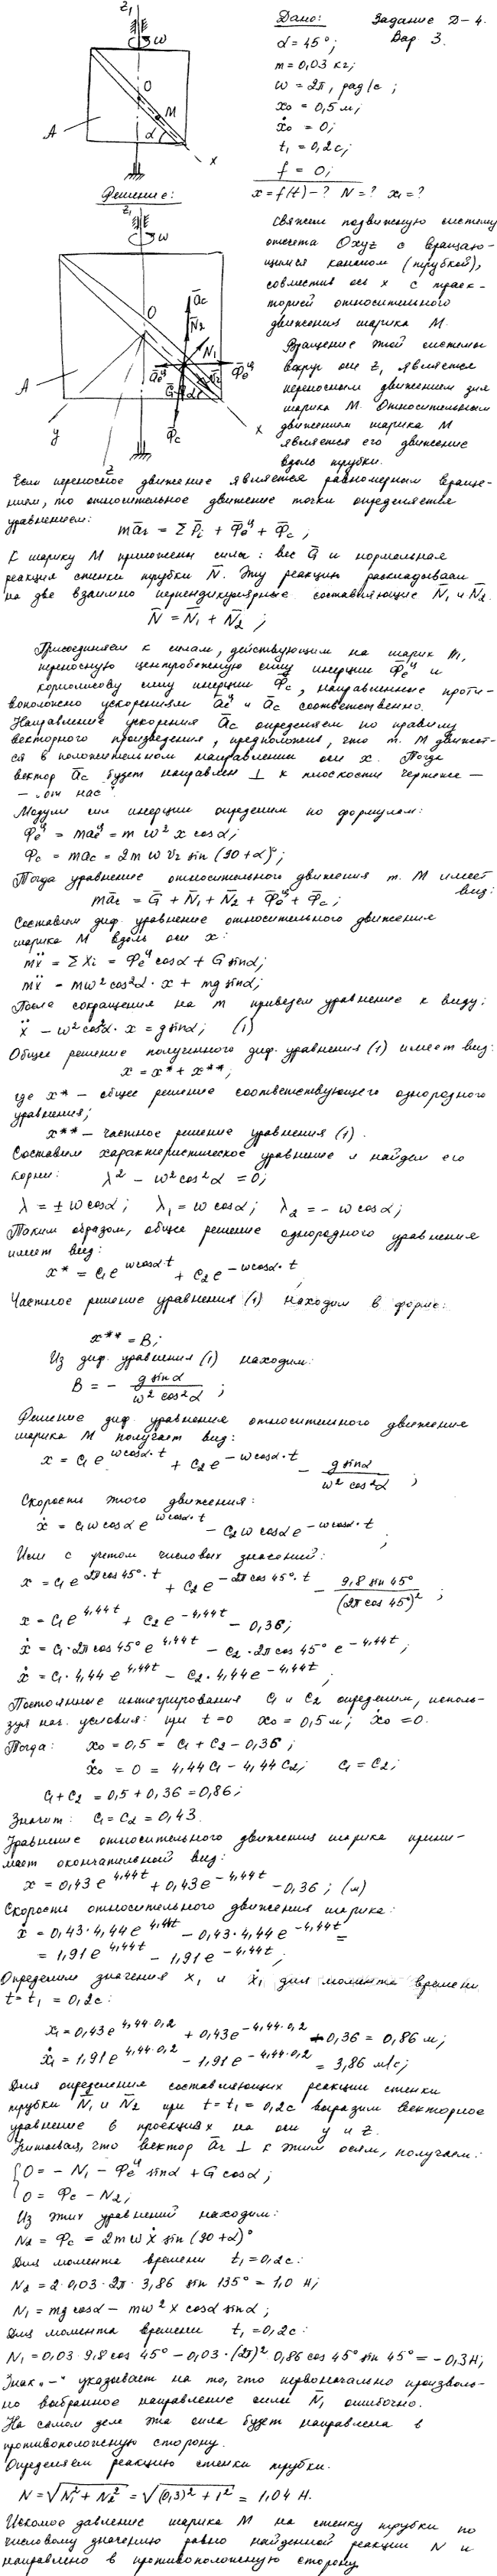 Дано: Задание Д-4.
Вар 3.
α = 45°;
m = 0,03 кг;
ω = 2π, рад/с;
x₀ = 0,5 м;
ẋ₀ = 0;
t₁ = 0,2 с;
f = 0;
x = f(t) - ? N = ? x₁ = ?
z₁
ω
O
M
A
α
x
Решение:
z₁
ω
O
āc
N̄₂
N₁
āeц
Φ̄eц
Ḡ
α
v̄r
Φ̄c
A
y
x
z
Свяжем подвижную систему
отсчета Oxyz с вращаю-
щимся каналом (трубкой),
совместив ось x с траек-
торией относительного
движения шарика М.
Вращение этой системы
вокруг оси z₁ является
переносным движением для
шарика М. Относительным
движением шарика М
является его движение
вдоль трубки.
Если переносное движение является равномерным враще-
нием, то относительное движение точки определяется
уравнением:
mār = ΣP̄i + Φ̄eц + Φ̄c;
К шарику М приложены силы: вес Ḡ и нормальная
реакция стенки трубки N̄. Эту реакцию раскладываем
на две взаимно перпендикулярные составляющие N̄₁ и N̄₂.
N̄ = N̄₁ + N̄₂;
Присоединяем к силам, действующим на шарик М,
переносную центробежную силу инерции Φ̄eц и
кориолисову силу инерции Φ̄c, направленные проти-
воположно ускорениям āeц и āc соответственно.
Направление ускорения āc определяем по правилу
векторного произведения, предположив, что т. М движет-
ся в положительном направлении оси x. Тогда
вектор āc будет направлен ⊥ к плоскости чертежа —
— „от нас".
Модули сил инерции определим по формулам:
Φeц = maeц = m ω² x cosα;
Φc = mac = 2m ω vr sin(90+α)°;
Тогда уравнение относительного движения т. М имеет
вид:
mār = Ḡ + N̄₁ + N̄₂ + Φ̄eц + Φ̄c;
Составим диф. уравнение относительного движения
шарика М вдоль оси x:
mẍ = ΣXi = Φeц cosα + G sinα;
mẍ = mω²cos²α · x + mg sinα;
После сокращения на m приведем уравнение к виду:
ẍ - ω²cos²α · x = g sinα; (1)
Общее решение полученного диф. уравнения (1) имеет вид:
x = x* + x**;
где x* - общее решение соответствующего однородного
уравнения;
x** - частное решение уравнения (1).
Составим характеристическое уравнение и найдем его
корни: λ² - ω²cos²α = 0;
λ = ± ω cosα; λ₁ = ω cosα; λ₂ = - ω cosα;
Таким образом, общее решение однородного уравнения
имеет вид:
x* = c₁e^(ωcosα·t) + c₂e^(-ωcosα·t);
Частное решение уравнения (1) находим в форме:
x** = B;
Из диф. уравнения (1) находим:
B = - g sinα / ω² cos²α;
Решение диф. уравнения относительного движения
шарика М получает вид:
x = c₁e^(ωcosα·t) + c₂e^(-ωcosα·t) - g sinα / ω² cos²α;
Скорость этого движения:
ẋ = c₁ω cosα e^(ωcosα·t) - c₂ω cosα e^(-ωcosα·t);
Или с учетом числовых значений:
x = c₁e^(2πcos45°·t) + c₂e^(-2πcos45°·t) - 9,8 sin45° / (2πcos45°)²;
x = c₁e^(4,44t) + c₂e^(-4,44t) - 0,36;
ẋ = c₁·2πcos45° e^(4,44t) - c₂·2πcos45° e^(-4,44t);
ẋ = c₁·4,44 e^(4,44t) - c₂·4,44 e^(-4,44t);
Постоянные интегрирования c₁ и c₂ определим, исполь-
зуя нач. условия: при t=0 x₀ = 0,5 м; ẋ₀ = 0.
Тогда: x₀ = 0,5 = c₁ + c₂ - 0,36;
ẋ₀ = 0 = 4,44c₁ - 4,44c₂; c₁ = c₂;
c₁ + c₂ = 0,5 + 0,36 = 0,86;
Значит: c₁ = c₂ = 0,43.
Уравнение относительного движения шарика прини-
мает окончательный вид:
x = 0,43e^(4,44t) + 0,43e^(-4,44t) - 0,36; (м)
Скорость относительного движения шарика:
ẋ = 0,43·4,44e^(4,44t) - 0,43·4,44e^(-4,44t) =
= 1,91e^(4,44t) - 1,91e^(-4,44t);
Определим значения x₁ и ẋ₁ для момента времени
t = t₁ = 0,2 с:
x₁ = 0,43e^(4,44·0,2) + 0,43e^(-4,44·0,2) - 0,36 = 0,86 м;
ẋ₁ = 1,91e^(4,44·0,2) - 1,91e^(-4,44·0,2) = 3,86 м/с;
Для определения составляющих реакции стенки
трубки N̄₁ и N̄₂ при t = t₁ = 0,2 с выразим векторное
уравнение в проекциях на оси y и z.
Учитывая, что вектор ār ⊥ к этим осям, получаем:
{0 = - N₁ - Φeц sinα + G cosα;
0 = Φc - N₂;
Из этих уравнений находим:
N₂ = Φc = 2m ω ẋ sin(90+α)°
Для момента времени t₁ = 0,2 с:
N₂ = 2·0,03·2π·3,86 sin 135° = 1,0 Н;
N₁ = mg cosα - mω² x cosα sinα;
Для момента времени t₁ = 0,2 с:
N₁ = 0,03·9,8 cos 45° - 0,03·(2π)² 0,86 cos 45° sin 45° = -0,3 Н;
Знак „-" указывает на то, что первоначально произволь-
но выбранное направление силы N₁ ошибочно.
На самом деле эта сила будет направлена в
противоположную сторону.
Определяем реакцию стенки трубки.
N = √(N₁² + N₂²) = √((0,3)² + 1²) = 1,04 Н.
Искомое давление шарика М на стенку трубки по
числовому значению равно найденной реакции N и
направлено в противоположную сторону